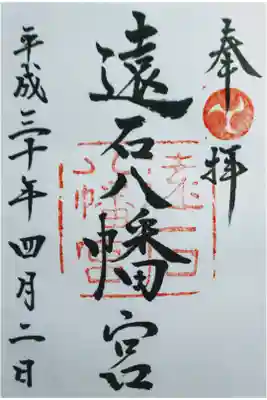 奉拝
遠石八幡宮
遠石八幡宮
平成三十年四月二日